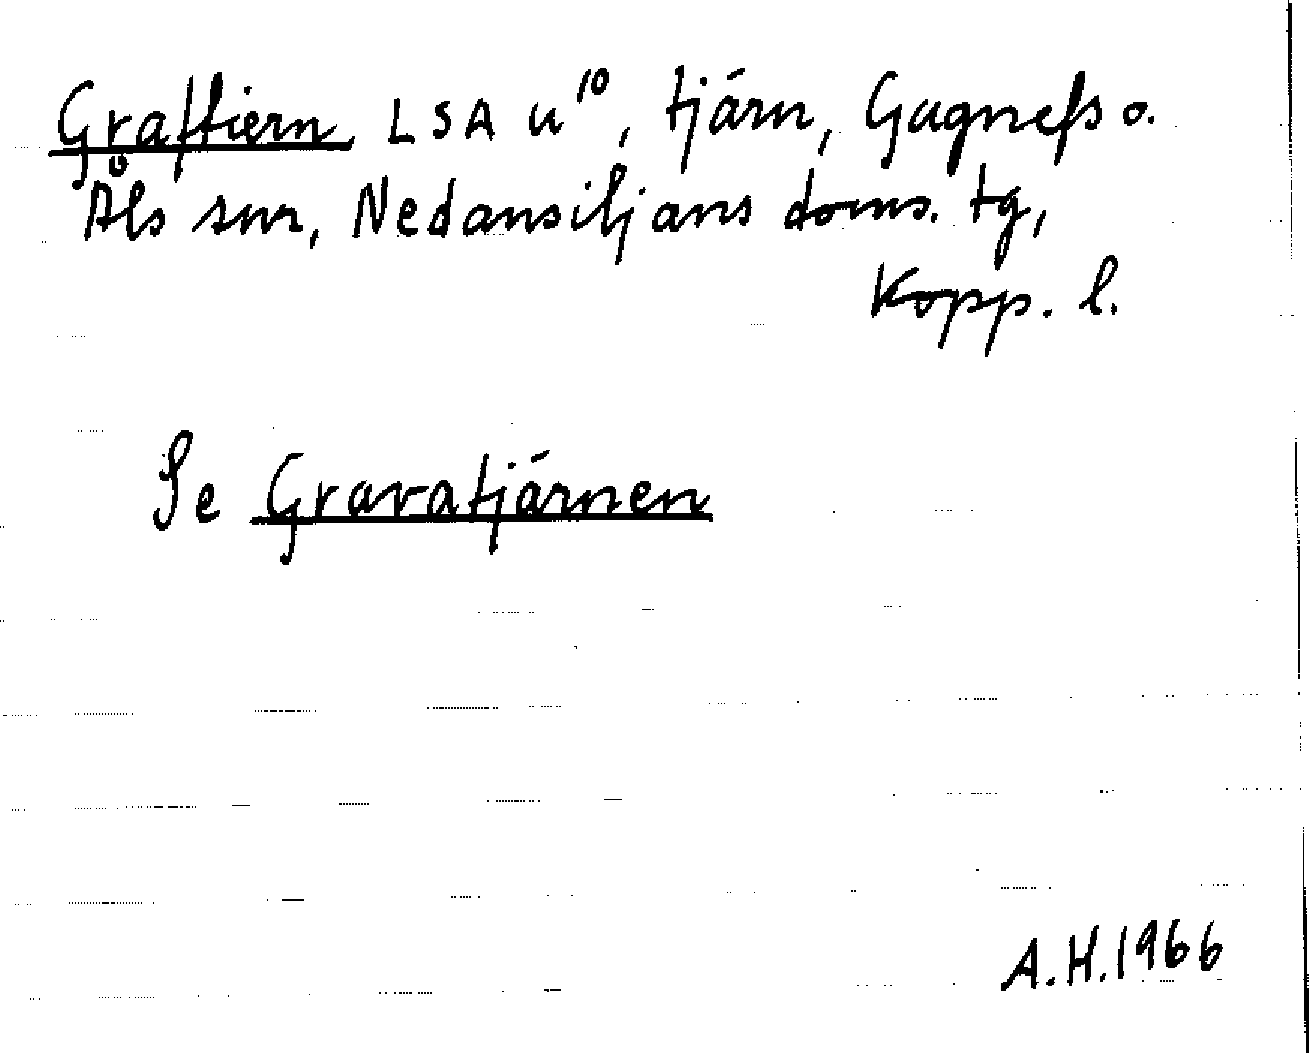 Graftiern LSA u¹⁰, tjärn, Gagnefs o.
Åls snr, Nedansiljans doms. tg,
Kopp. l.
Se Gravatjärnen
A.H.1966